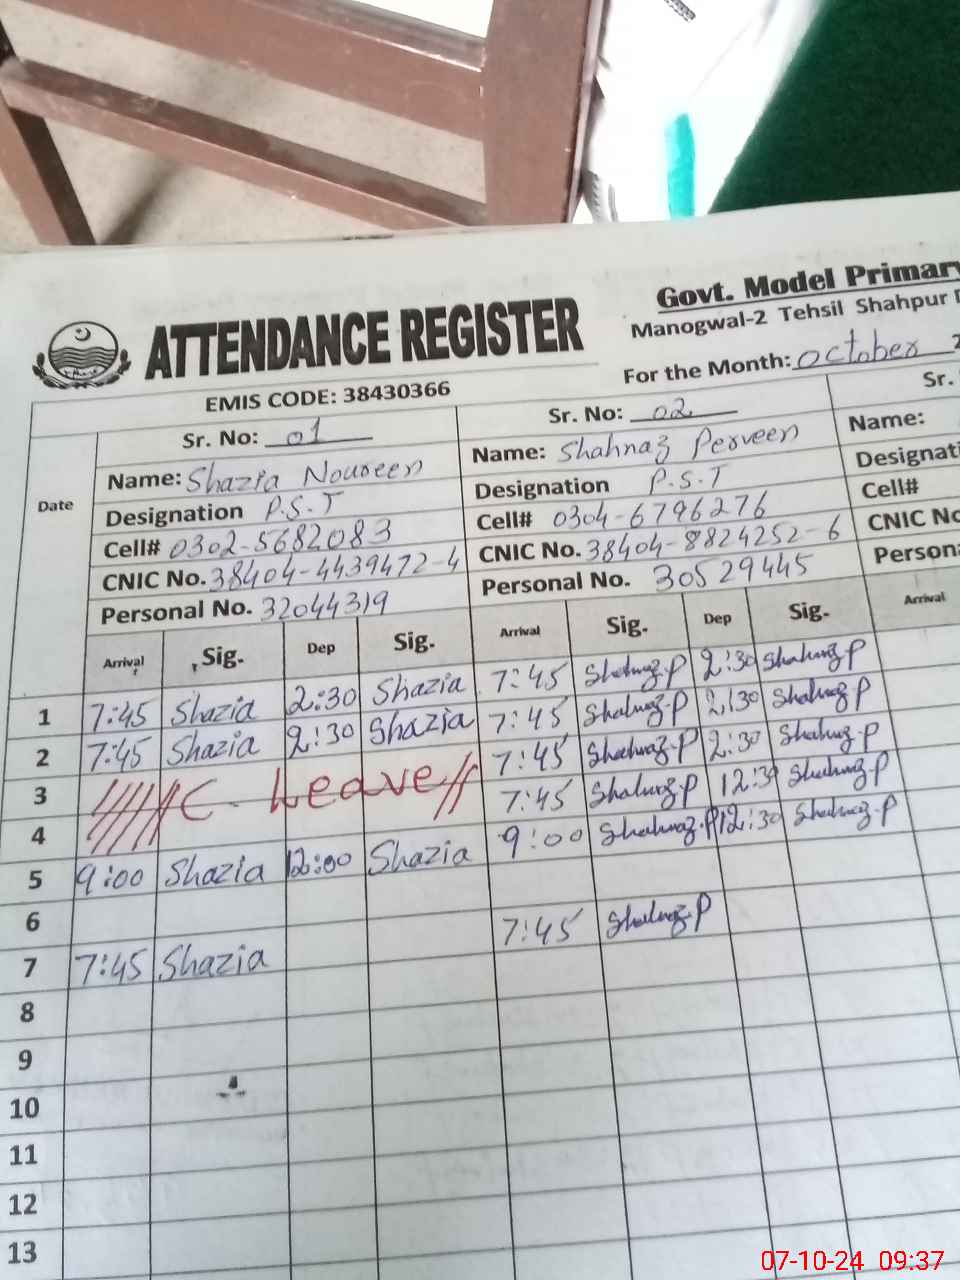 ATTENDANCE REGISTER
Govt. Model Primary
Manogwal-2 Tehsil Shahpur D
For the Month: October 2
EMIS CODE: 38430366
Date
Sr. No: 01
Name: Shazia Noureen
Designation P.S.T
Cell# 0302-5682083
CNIC No. 38404-4439472-4
Personal No. 32044319
Sr. No: 02
Name: Shahnaz Perveen
Designation P.S.T
Cell# 0304-6796276
CNIC No. 38404-8824252-6
Personal No. 30529445
Sr.
Name:
Designati
Cell#
CNIC No
Persona
Arrival Sig. Dep Sig. Arrival Sig. Dep Sig. Arrival
1 7:45 Shazia 2:30 Shazia 7:45 Shahnaz.P 2:30 Shahnaz.P
2 7:45 Shazia 2:30 Shazia 7:45 Shahnaz.P 2:30 Shahnaz.P
3 C. Leave 7:45 Shahnaz.P 2:30 Shahnaz.P
4 7:45 Shahnaz.P 12:30 Shahnaz.P
5 9:00 Shazia 12:00 Shazia 9:00 Shahnaz.P 12:30 Shahnaz.P
6
7 7:45 Shazia 7:45 Shahnaz.P
8
9
10
11
12
13
07-10-24 09:37